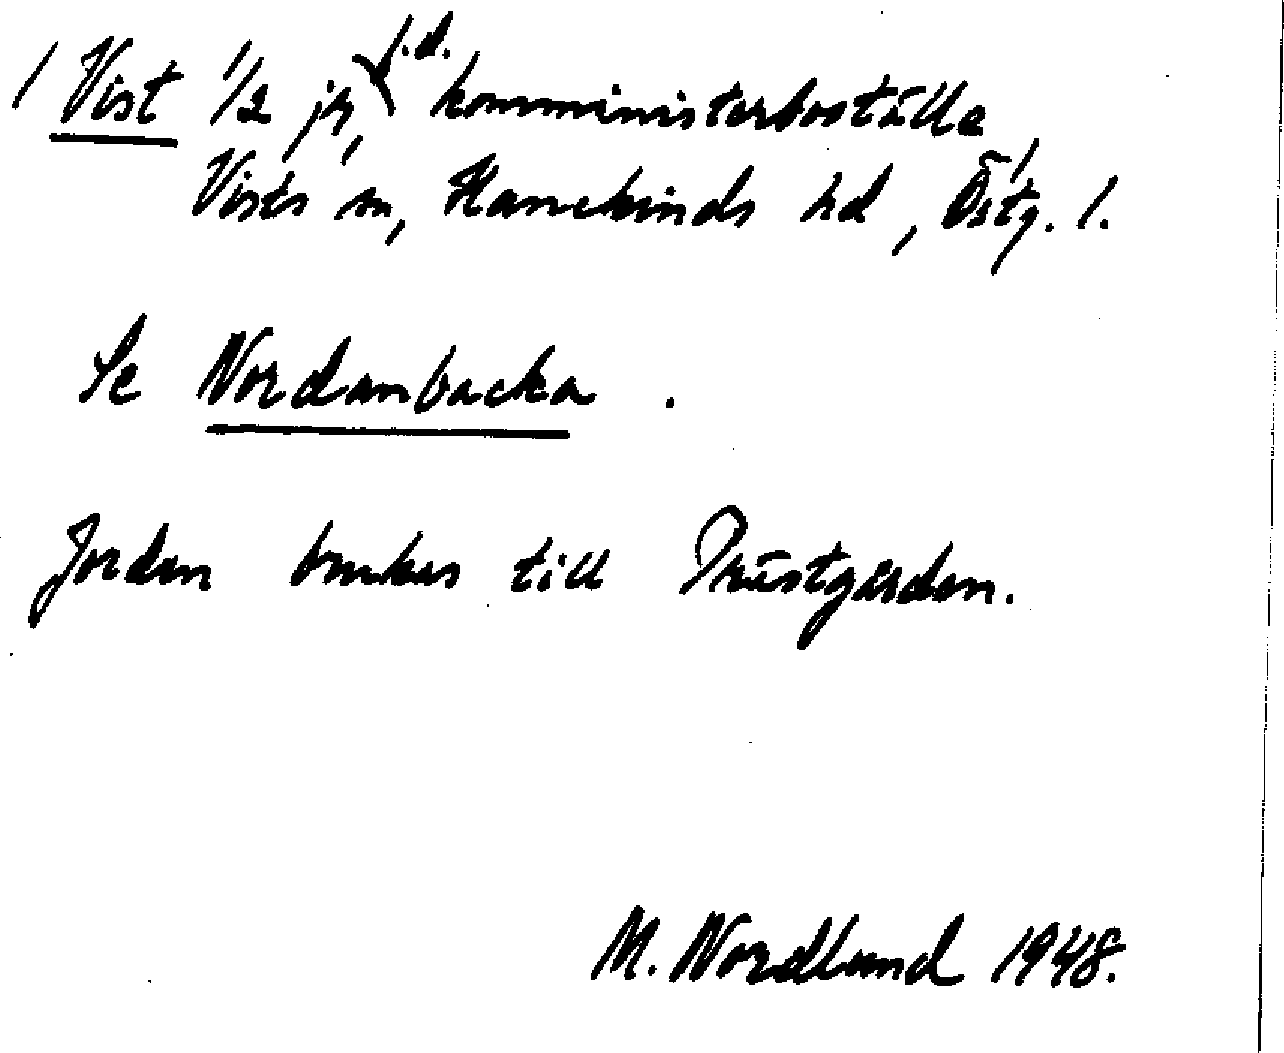 / Vist 1/2 jfr, f.d. komministerboställe,
Vists sn, Hanekinds hd, Östg. l.
Se Nordanbacka.
Jorden brukas till Prästgården.
M. Nordlund 1948.